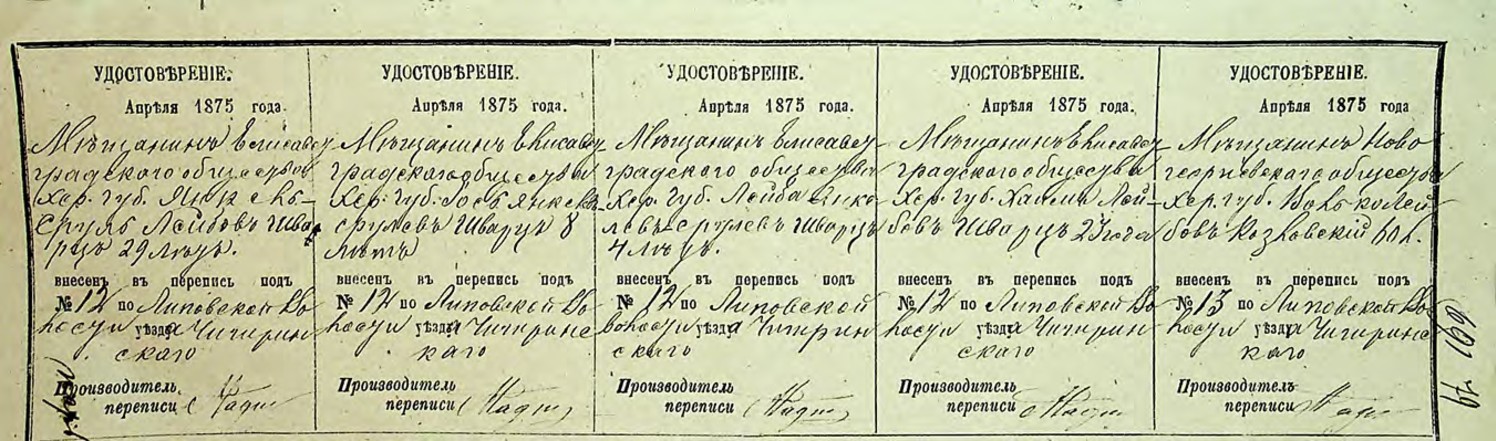 УДОСТОВѢРЕНІЕ.
Апрѣля 1875 года.
Мѣщанинъ Елисавет-
градского общества
Хер. губ. Янкель-
Сруль Лейбовъ Шва-
рцъ 29 лѣтъ.
внесенъ въ перепись подъ
№ 12 по Липовской Во-
лости уѣзда Чигирин
скаго
Производитель
переписи
УДОСТОВѢРЕНІЕ.
Апрѣля 1875 года.
Мѣщанинъ Елисавет-
градского общества
Хер. губ. Іось Янкель-
Срулевъ Шварцъ 8
лѣтъ
внесенъ въ перепись подъ
№ 12 по Липовской Во-
лости уѣзда Чигиринс
каго
Производитель
переписи
УДОСТОВѢРЕНІЕ.
Апрѣля 1875 года.
Мѣщанинъ Елисавет-
градского общества
Хер. губ. Лейба Янке
левъ-Срулевъ Шварцъ
4 лѣтъ.
внесенъ въ перепись подъ
№ 12 по Липовской
Волости уѣзда Чигирин
скаго
Производитель
переписи
УДОСТОВѢРЕНІЕ.
Апрѣля 1875 года.
Мѣщанинъ Елисавет-
градского общества
Хер. губ. Хаимъ Лей-
бовъ Шварцъ 23 года
внесенъ въ перепись подъ
№ 12 по Липовской Во-
лости уѣзда Чигирин
скаго
Производитель
переписи
УДОСТОВѢРЕНІЕ.
Апрѣля 1875 года
Мѣщанинъ Ново
георгіевского общества
Хер. губ. Лей-
бовъ Козловскій 60 л.
внесенъ въ перепись подъ
№ 13 по Липовской Во-
лости уѣзда Чигиринс
каго
Производитель
переписи
169